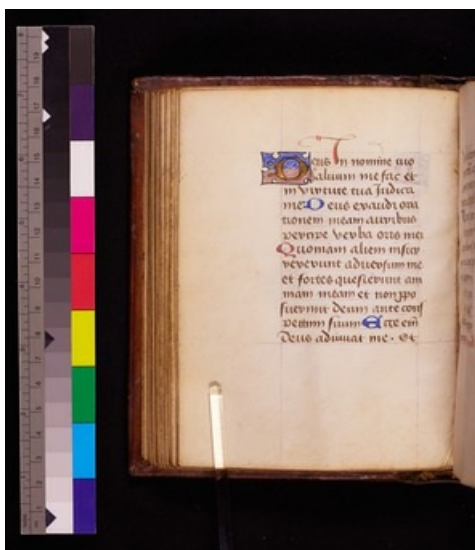 Deus In nomine tuo
saluum me fac et
in virtute tua Judica
me Deus exaudi ora
tionem meam auribus
percipe verba oris mei
Quoniam alieni insur
rexerunt aduersum me
et fortes quesierunt ani
mam meam et non pro
suerunt deum ante cons
pectum suum Ecce eni
Deus adiuuat me. Et